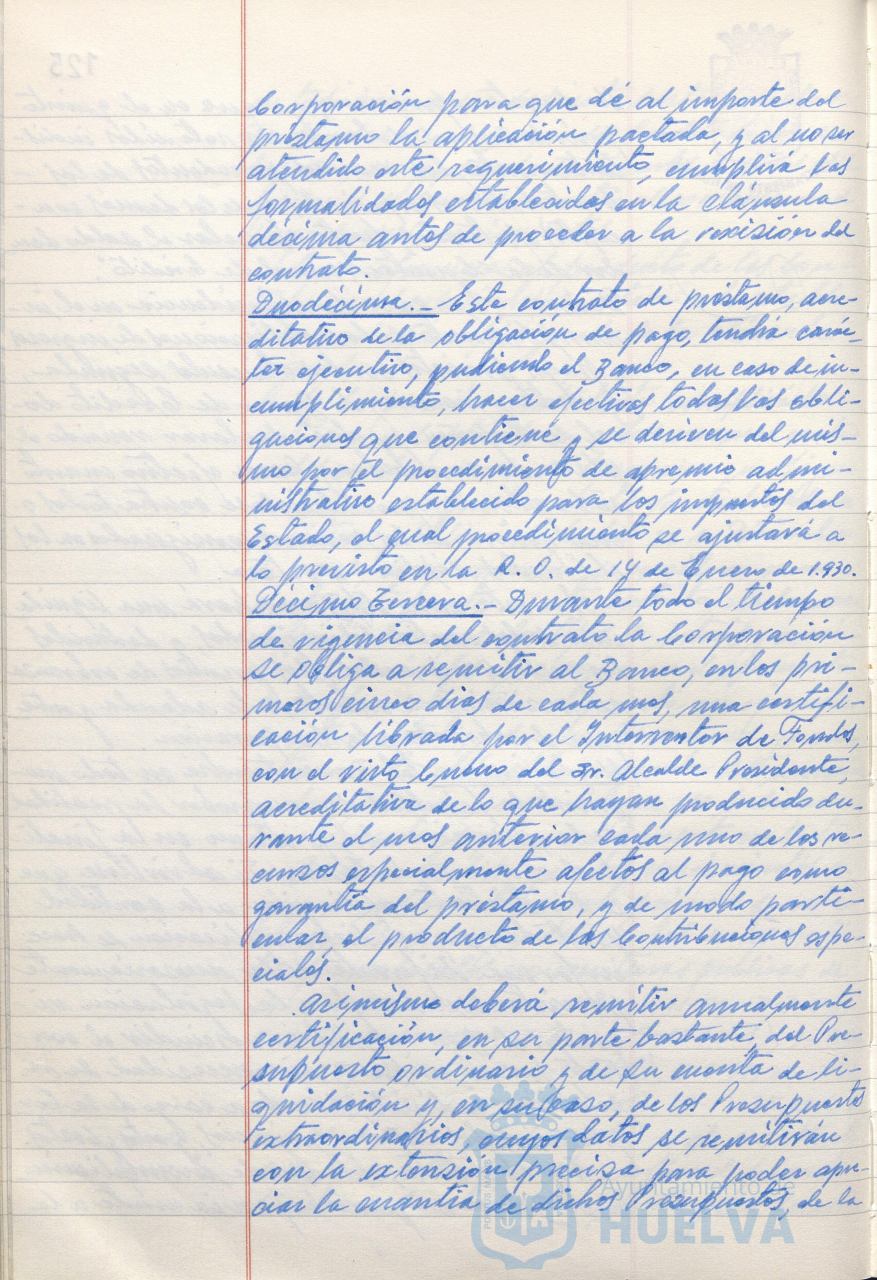 Corporación para que dé al importe del
préstamo la aplicación pactada, y al no ser
atendido este requerimiento, cumplirá las
formalidades establecidas en la cláusula
décima antes de proceder a la rexisión del
contrato.
Duodécima.- Este contrato de préstamo, acre-
ditativo de la obligación de pago, tendrá carác-
ter ejecutivo, pudiendo el Banco, en caso de in-
cumplimiento, hacer efectivas todas las obli-
gaciones que contiene y se deriven del mis-
mo por el procedimiento de apremio admi-
nistrativo establecido para los impuestos del
Estado, el cual procedimiento se ajustará a
lo previsto en la R. O. de 14 de Enero de 1.930.
Décimo Tercera.- Durante todo el tiempo
de vigencia del contrato la Corporación
se obliga a remitir al Banco, en los pri-
meros cinco dias de cada mes, una certifi-
cación librada por el Interventor de Fondos,
con el visto bueno del Sr. Alcalde Presidente,
acreditativa de lo que hayan producido du-
rante el mes anterior cada uno de los re-
cursos especialmente afectos al pago como
garantía del préstamo, y de modo parti-
cular, el producto de las Contribuciones espe-
ciales.
Asimismo deberá remitir anualmente
certificación, en su parte bastante, del Pre-
supuesto ordinario y de su cuenta de li-
quidación y, en su caso, de los Presupuestos
extraordinarios, cuyos datos se remitirán
con la extensión precisa para poder apre-
ciar la cuantía de dichos Presupuestos, de la
Ayuntamiento de
HUELVA
125